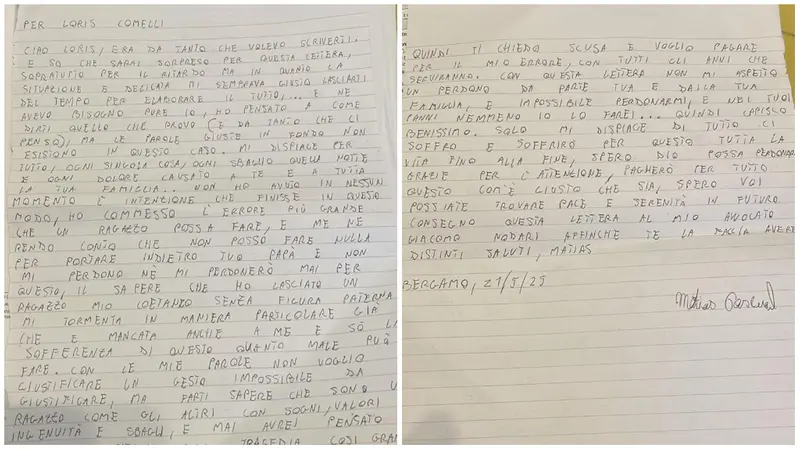 PER LORIS COMELLI
CIAO LORIS, ERA DA TANTO CHE VOLEVO SCRIVERTI.
E SO CHE SARAI SORPRESO PER QUESTA LETTERA,
SOPRATUTTO PER IL RITARDO MA IN QUANTO LA
SITUAZIONE È DELICATA MI SEMBRAVA GIUSTO LASCIARTI
DEL TEMPO PER ELABORARE IL TUTTO,... E NE
AVEVO BISOGNO PURE IO, HO PENSATO A COME
DIRTI QUELLO CHE PROVO (E DA TANTO CHE CI
PENSO), MA LE PAROLE GIUSTE IN FONDO NON
ESISTONO IN QUESTO CASO. MI DISPIACE PER
TUTTO, OGNI SINGOLA COSA, OGNI SBAGLIO QUELLA NOTTE
E OGNI DOLORE CAUSATO A TE E A TUTTA
LA TUA FAMIGLIA... NON HO AVUTO IN NESSUN
MOMENTO L'INTENZIONE CHE FINISSE IN QUESTO
MODO, HO COMMESSO L'ERRORE PIÙ GRANDE
CHE UN RAGAZZO POSSA FARE, E ME NE
RENDO CONTO CHE NON POSSO FARE NULLA
PER PORTARE INDIETRO TUO PAPÀ E NON
MI PERDONO NÉ MI PERDONERÒ MAI PER
QUESTO, IL SAPERE CHE HO LASCIATO UN
RAGAZZO MIO COETANEO SENZA FIGURA PATERNA
MI TORMENTA IN MANIERA PARTICOLARE GIÀ
CHE E MANCATA ANCHE A ME E SÒ LA
SOFFERENZA DI QUESTO QUANTO MALE PUÒ
FARE. CON LE MIE PAROLE NON VOGLIO
GIUSTIFICARE UN GESTO IMPOSSIBILE DA
GIUSTIFICARE, MA FARTI SAPERE CHE SONO U
RAGAZZO COME GLI ALTRI CON SOGNI, VALORI
INGENUITÀ E SBAGLI, E MAI AVREI PENSATO
TRAGEDIA COSÌ GRAN
QUINDI TI CHIEDO SCUSA E VOGLIO PAGARE
PER IL MIO ERRORE, CON TUTTI GLI ANNI CHE
SERVIRANNO. CON QUESTA LETTERA NON MI ASPETTO
UN PERDONO DA PARTE TUA E DALLA TUA
FAMIGLIA, E IMPOSSIBILE PERDONARMI, E NEI TUOI
PANNI NEMMENO IO LO FAREI... QUINDI CAPISCO
BENISSIMO. SOLO MI DISPIACE DI TUTTO CI
SOFFRO E SOFFRIRÒ PER QUESTO TUTTA LA
VITA FINO ALLA FINE, SPERO DIO POSSA PERDONAR
GRAZIE PER L'ATTENZIONE, PAGHERÒ PER TUTTO
QUESTO COM'È GIUSTO CHE SIA, SPERO VOI
POSSIATE TROVARE PACE E SERENITÀ IN FUTURO
CONSEGNO QUESTA LETTERA AL MIO AVVOCATO
GIACOMO NODARI AFFINCHE TE LA FACCIA AVERE
DISTINTI SALUTI, MATIAS
BERGAMO, 21/5/25
Matias Pascual